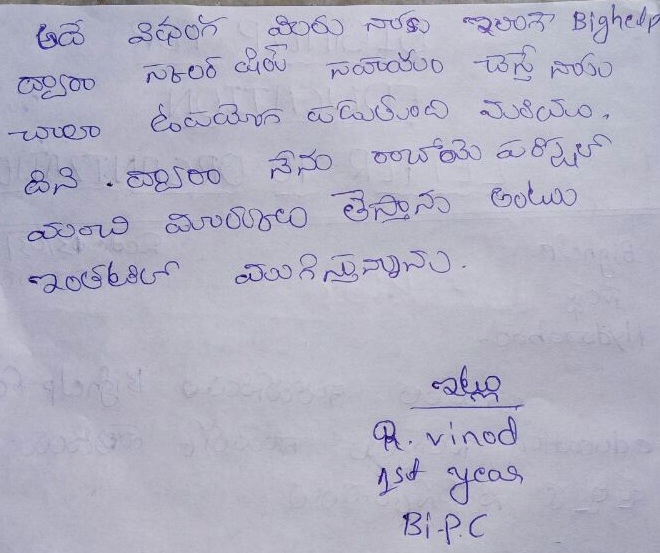 అదే విధంగ మీరు నాకు ఇలంగే Bighelp
ద్వారా స్కాలర్ షిప్ సహాయం చేస్తే నాకు
చాలా ఉపయోగ పడుతుంది మరియు.
దిని . ద్వారా నేను రాబోయె పరీక్షల్
మంచి మార్కులు తెస్తాను అంటు
ఇంతటితో ముగిస్తున్నాను.
ఇట్లు
R. vinod
1st year
Bi.P.C